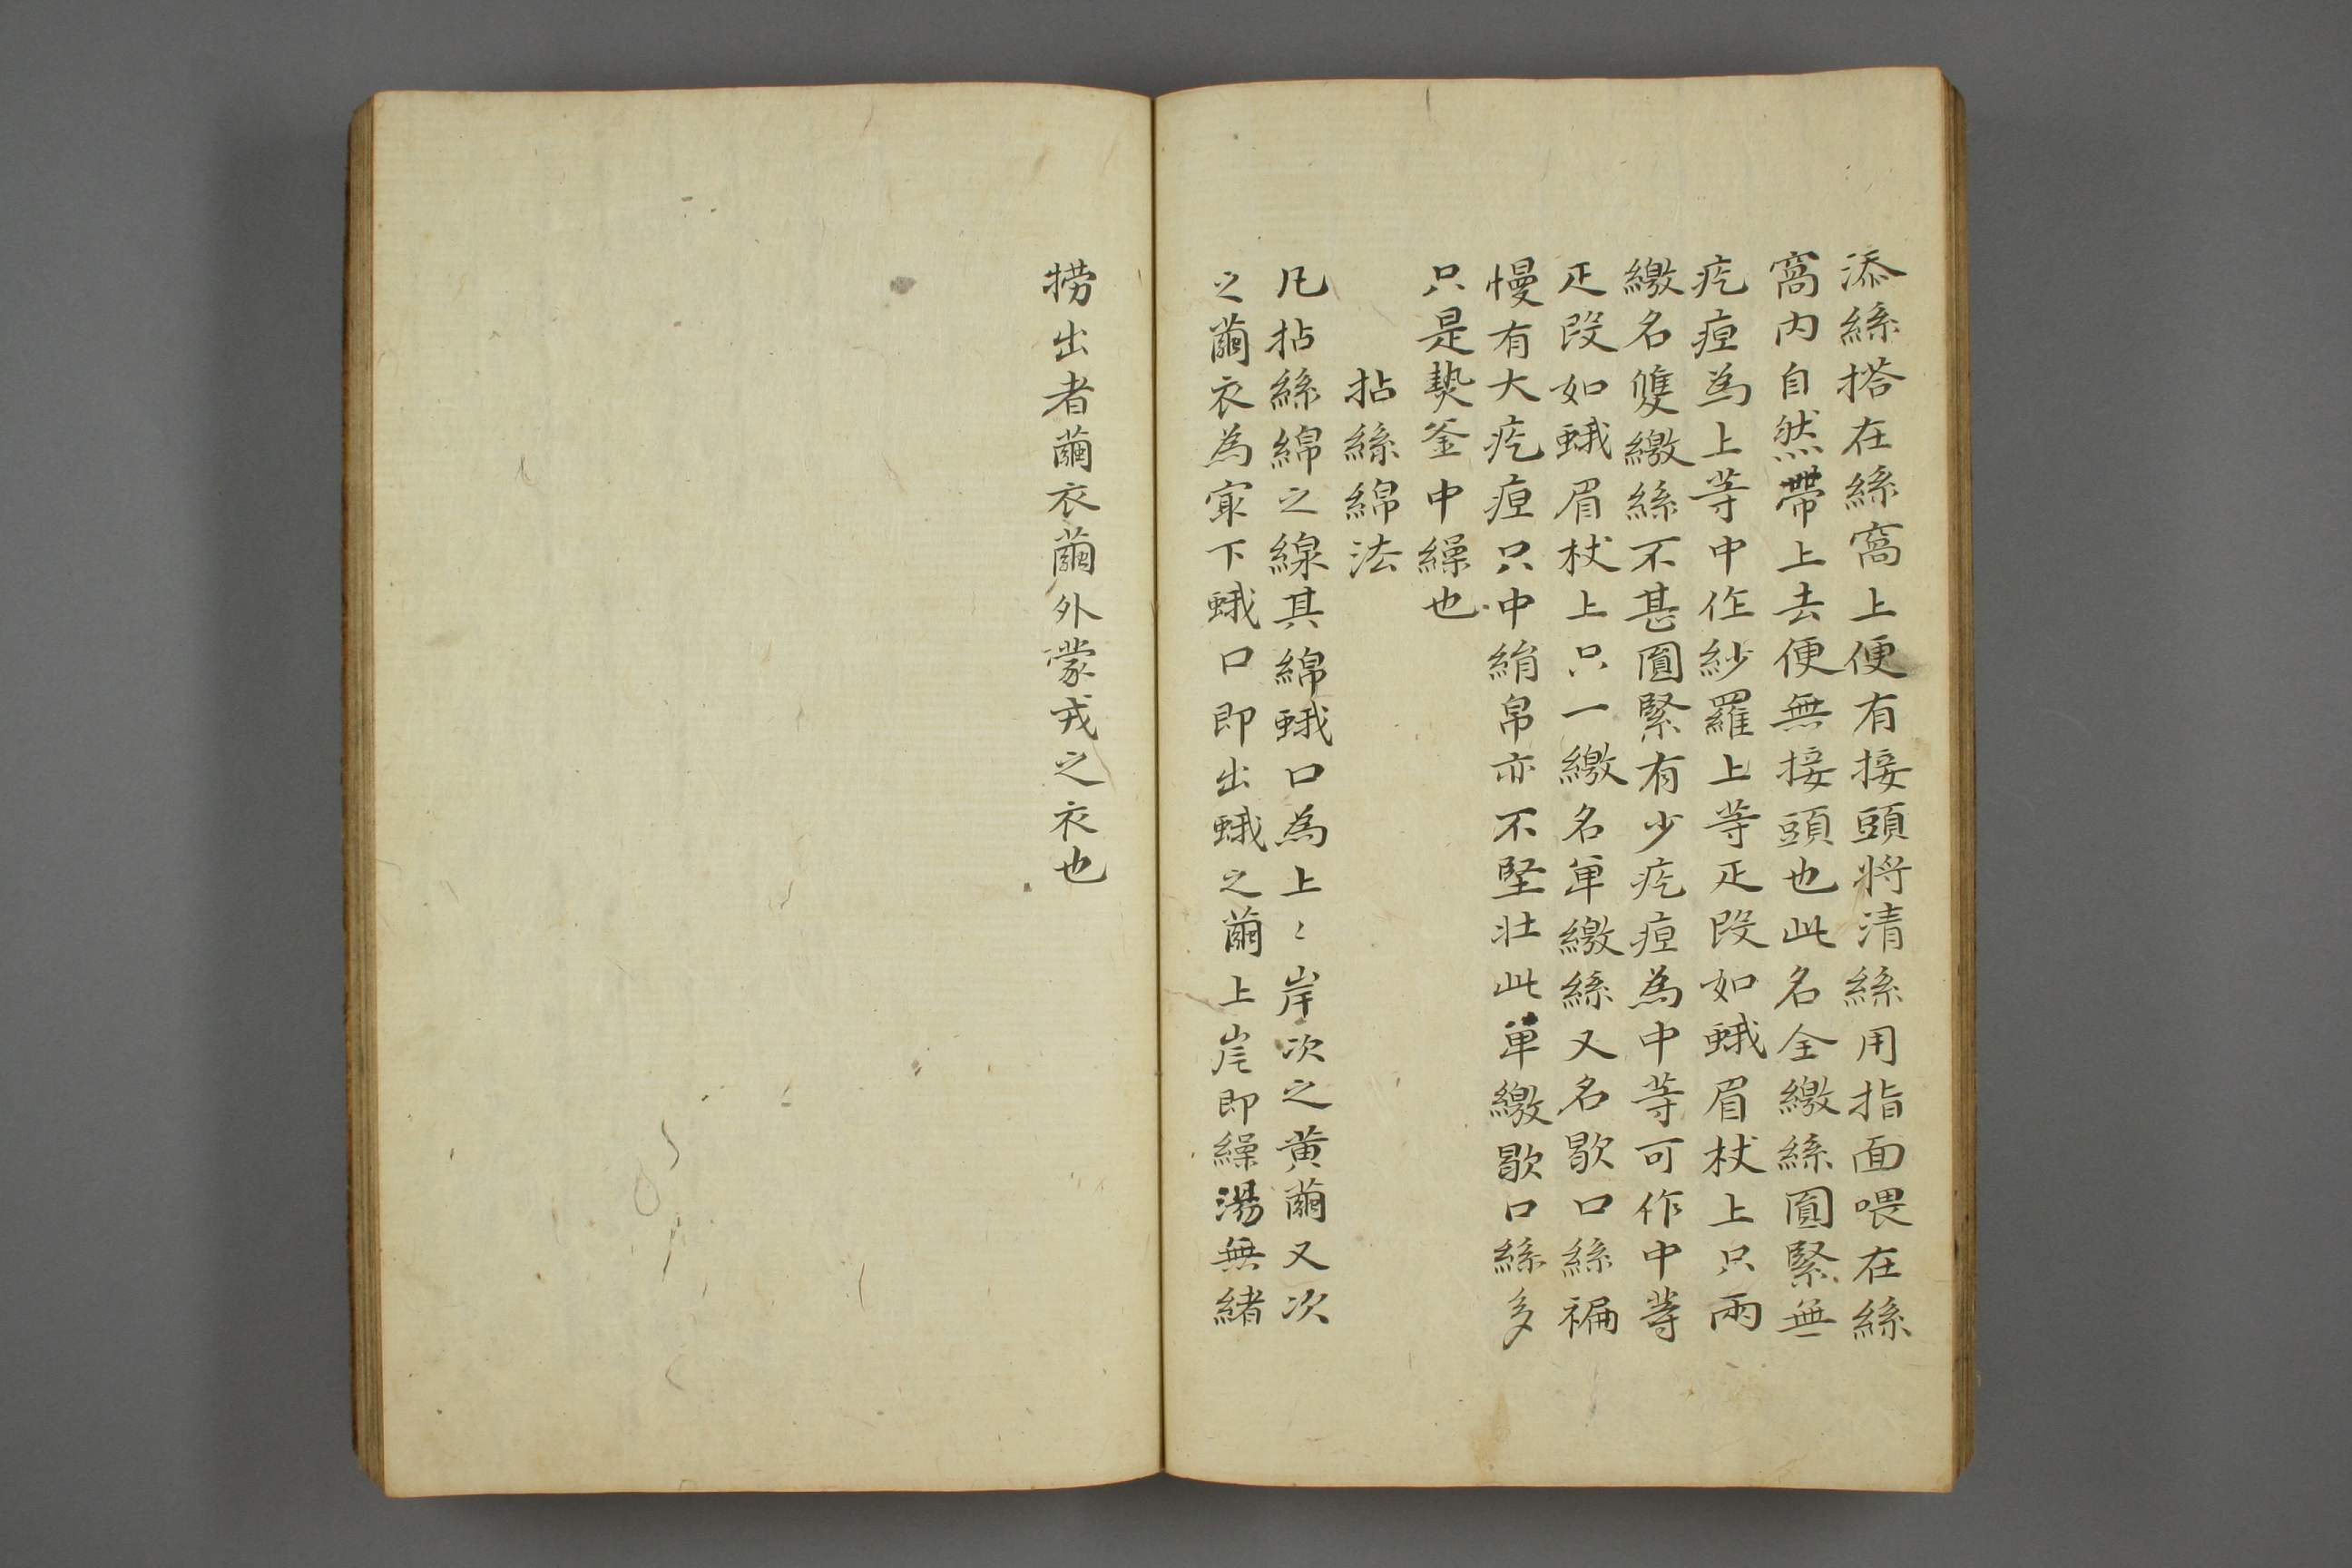 添絲搭在絲窩上便有接頭將清絲用指面喂在絲
窩内自然帶上去便無接頭也此名全繳絲圓緊無
疙疸為上等中作紗羅上等疋段如蛾眉杖上只兩
繳名雙繳絲不甚圓緊有少疙疸為中等可作中等
疋段如蛾眉杖上只一繳名单繳絲又名歇口絲褊
慢有大疙疸只中絹帛亦不堅壮此单繳歇口絲多
只是𤍠釜中繰也
拈絲綿法
凡拈絲綿之線其綿蛾口為上〻岸次之黄繭又次
之繭衣為㝡下蛾口即出蛾之繭上岸即繰湯無緒
撈出者繭衣繭外蒙戎之衣也